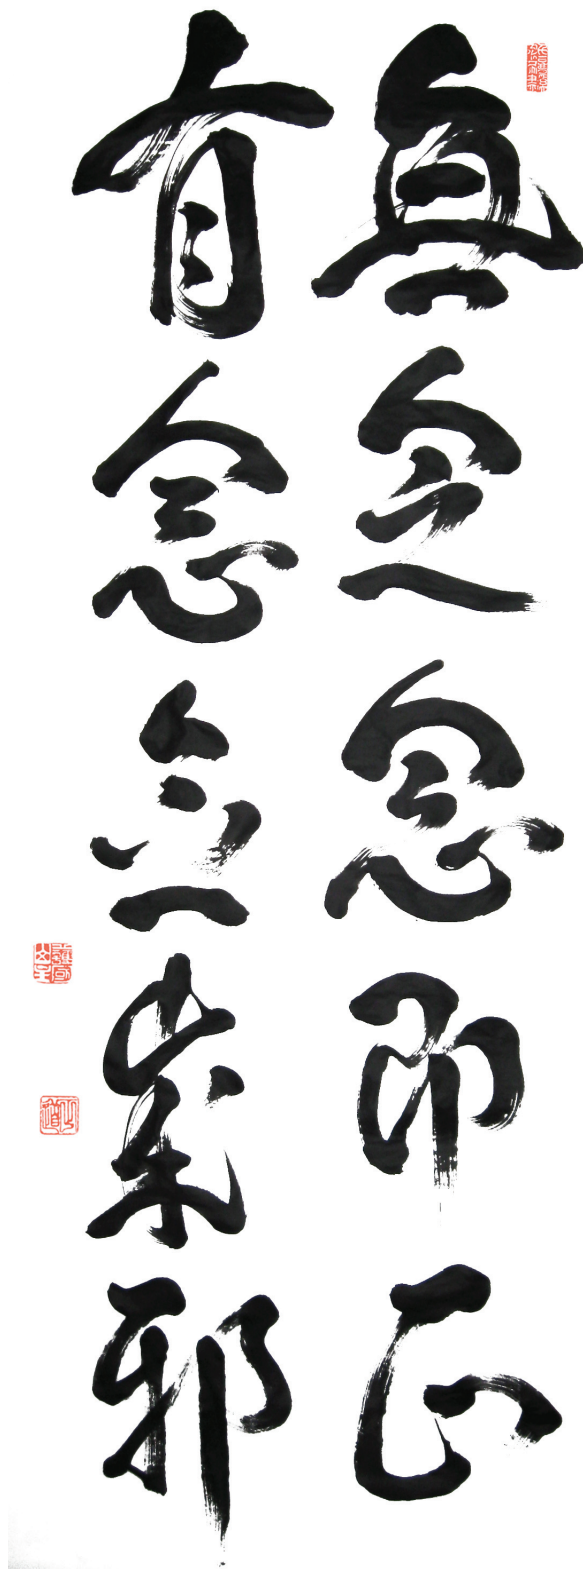 無念念即正
有念念成邪